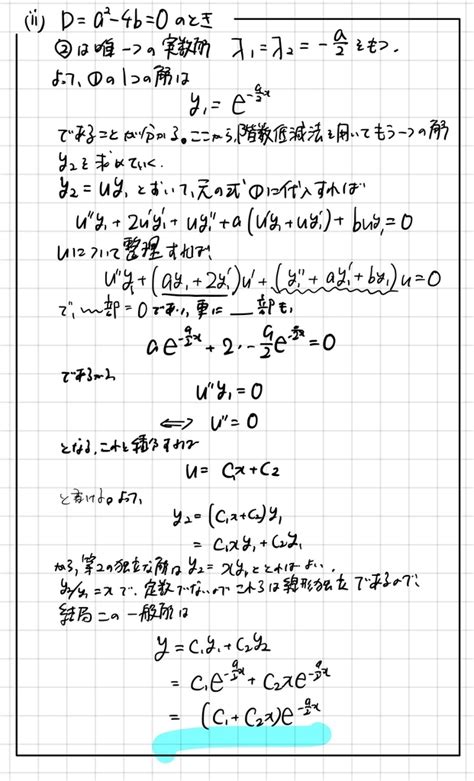 (ii) D = a²-4b = 0 のとき
②は唯一つの実数解 λ₁=λ₂ = -a/2 をもつ.
よって, ①の1つの解は
y₁ = e^{-a/2 x}
であることが分かる。ここから, 階数低減法を用いてもう一つの解
y₂ を求めていく.
y₂ = uy₁ とおいて, 元の式①に代入すれば
u''y₁ + 2u'y₁' + uy₁'' + a(u'y₁+uy₁') + buy₁ = 0
uについて整理すれば,
u''y₁ + (ay₁ + 2y₁')u' + (y₁'' + ay₁' + by₁)u = 0
で, 〰部 = 0 であり, 更に __部も,
ae^{-a/2 x} + 2・-a/2 e^{-a/2 x} = 0
であるから
u''y₁ = 0
⇔ u'' = 0
となる. これを積分すれば
u = C₁x + C₂
と書ける。よって,
y₂ = (C₁x+C₂)y₁
= C₁xy₁ + C₂y₁
から, 第2の独立な解は y₂ = xy₁ ととればよい.
y₂/y₁ = x で, 定数でないので これらは線形独立であるので,
結局この一般解は
y = C₁y₁ + C₂y₂
= C₁e^{-a/2 x} + C₂xe^{-a/2 x}
= (C₁+C₂x)e^{-a/2 x}